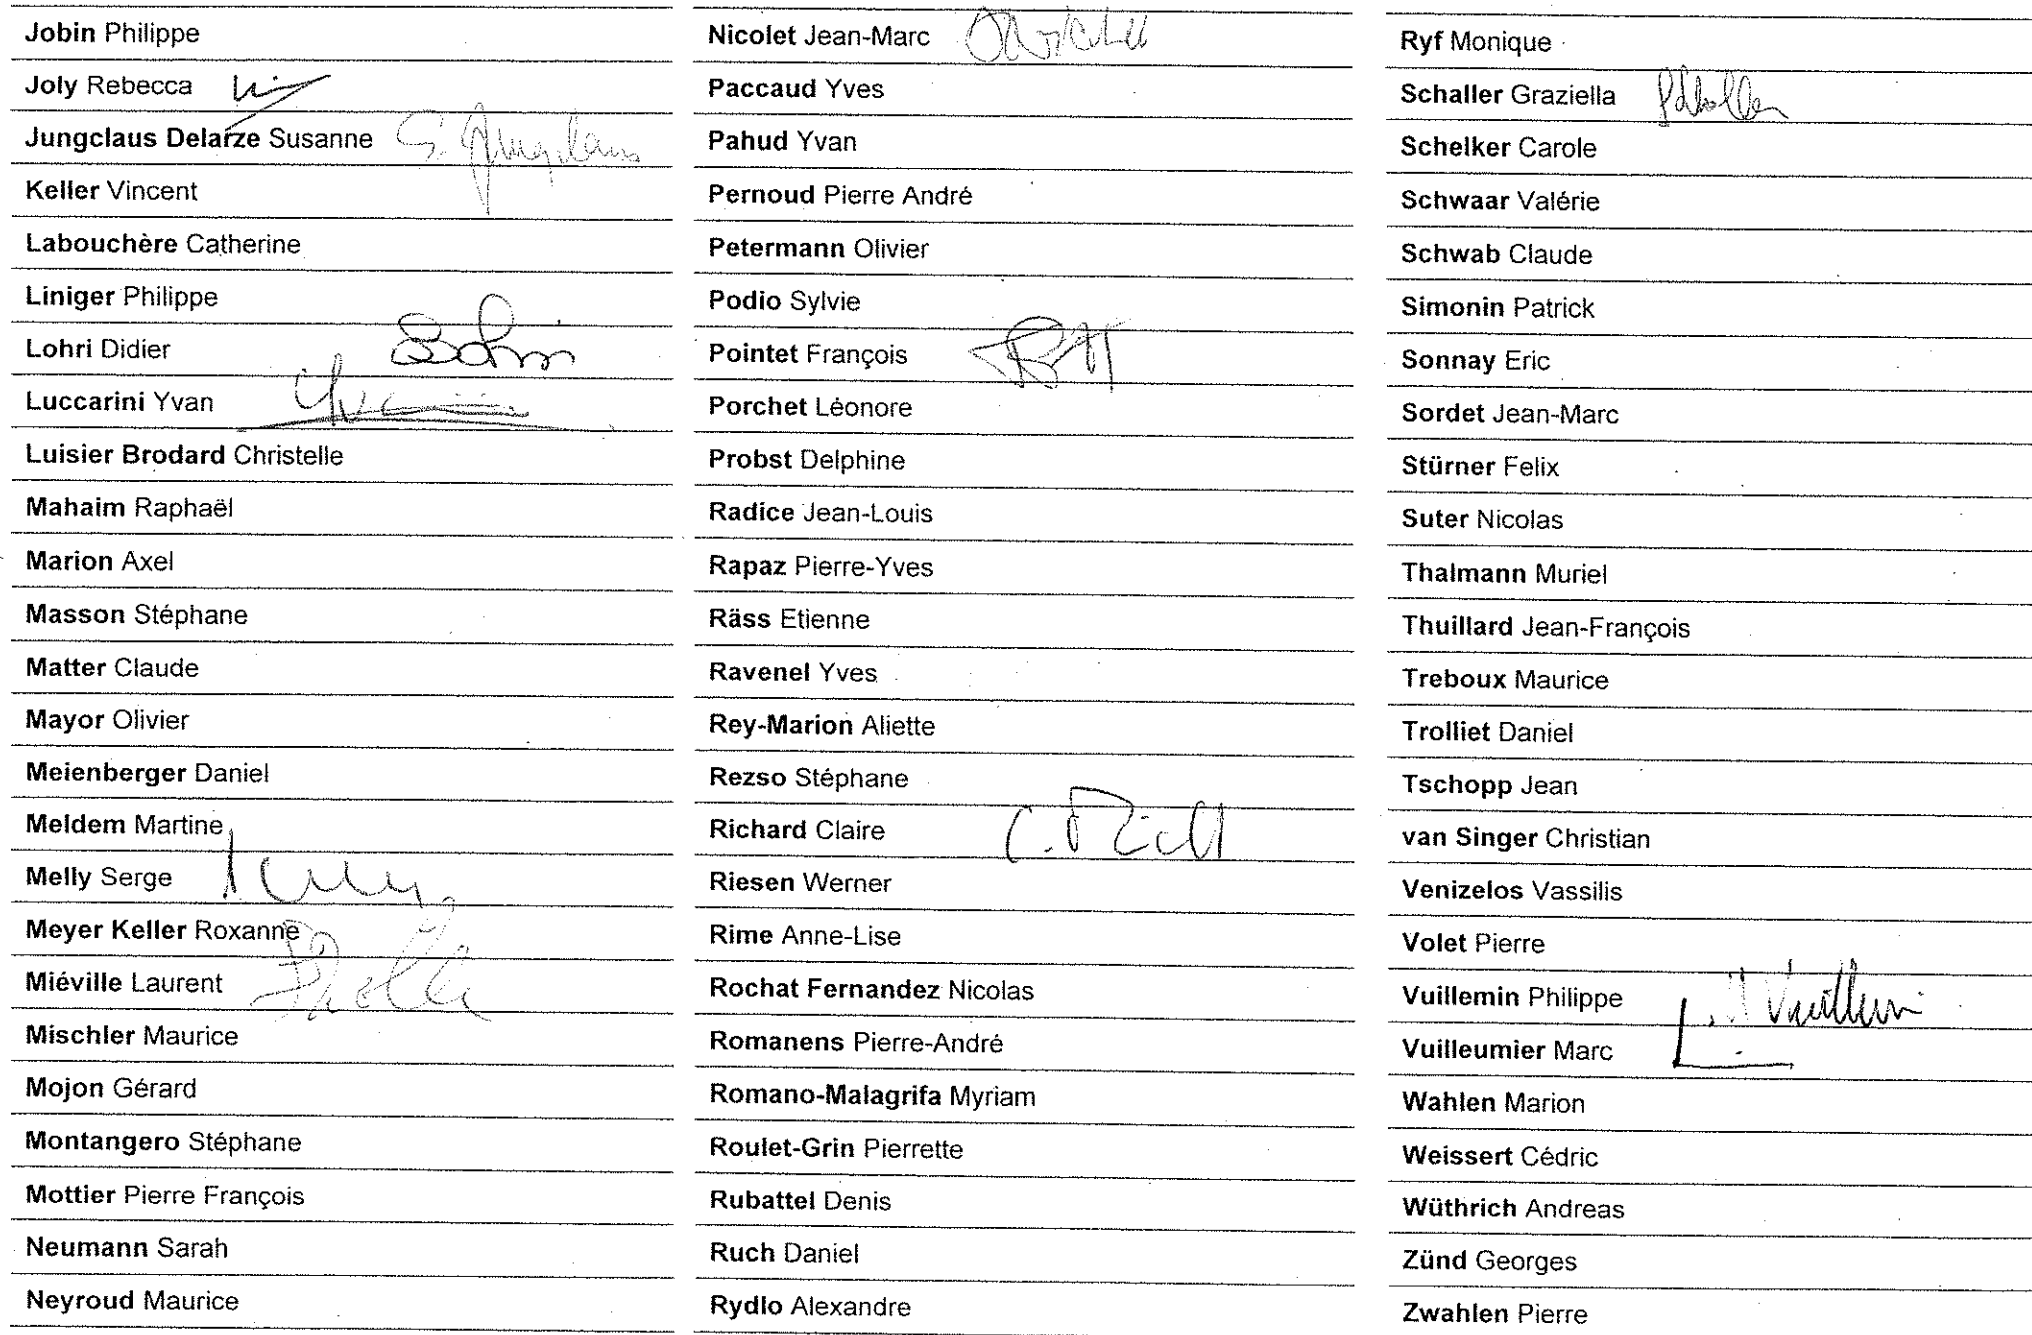 Jobin Philippe
Joly Rebecca
Jungclaus Delarze Susanne S. Jungclaus
Keller Vincent
Labouchère Catherine
Liniger Philippe
Lohri Didier
Luccarini Yvan
Luisier Brodard Christelle
Mahaim Raphaël
Marion Axel
Masson Stéphane
Matter Claude
Mayor Olivier
Meienberger Daniel
Meldem Martine
Melly Serge
Meyer Keller Roxanne
Miéville Laurent
Mischler Maurice
Mojon Gérard
Montangero Stéphane
Mottier Pierre François
Neumann Sarah
Neyroud Maurice
Nicolet Jean-Marc
Paccaud Yves
Pahud Yvan
Pernoud Pierre André
Petermann Olivier
Podio Sylvie
Pointet François
Porchet Léonore
Probst Delphine
Radice Jean-Louis
Rapaz Pierre-Yves
Räss Etienne
Ravenel Yves
Rey-Marion Aliette
Rezso Stéphane
Richard Claire
Riesen Werner
Rime Anne-Lise
Rochat Fernandez Nicolas
Romanens Pierre-André
Romano-Malagrifa Myriam
Roulet-Grin Pierrette
Rubattel Denis
Ruch Daniel
Rydlo Alexandre
Ryf Monique
Schaller Graziella
Schelker Carole
Schwaar Valérie
Schwab Claude
Simonin Patrick
Sonnay Eric
Sordet Jean-Marc
Stürner Felix
Suter Nicolas
Thalmann Muriel
Thuillard Jean-François
Treboux Maurice
Trolliet Daniel
Tschopp Jean
van Singer Christian
Venizelos Vassilis
Volet Pierre
Vuillemin Philippe
Vuilleumier Marc
Wahlen Marion
Weissert Cédric
Wüthrich Andreas
Zünd Georges
Zwahlen Pierre